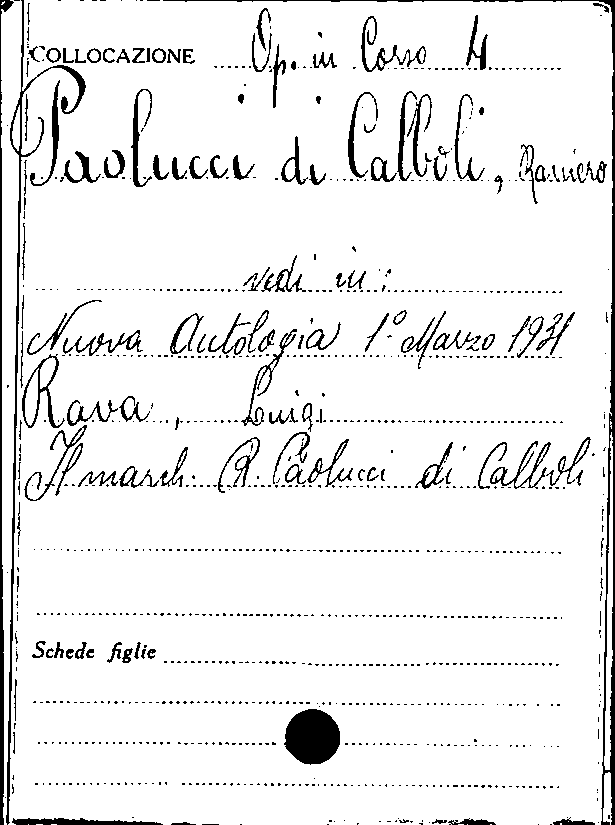 COLLOCAZIONE Op. in Corso 4
Paolucci di Calboli, Raniero
vedi in:
Nuova Antologia 1º Marzo 1931
Rava, Luigi
Il march. R. Paolucci di Calboli
Schede figlie